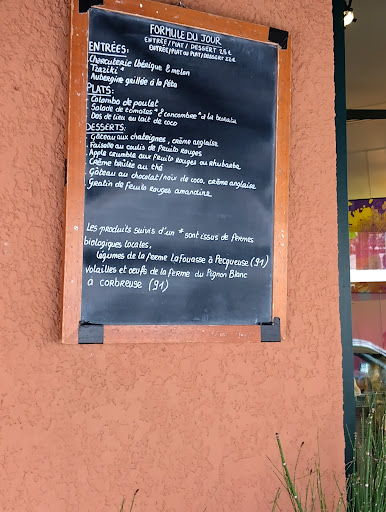 FORMULE DU JOUR
ENTRÉE / PLAT / DESSERT 25 €
ENTRÉE/PLAT OU PLAT/DESSERT 22 €
ENTRÉES:
Charcuterie Ibérique & melon
Tzaziki *
Aubergine grillée à la féta
PLATS:
. Colombo de poulet
. Salade de tomates * & concombre * à la burrata
. Dos de lieu au lait de coco
DESSERTS.
. Gâteau aux chataignes, crème anglaise
. Faisselle au coulis de fruits rouges
. Apple crumble aux fruits rouges ou rhubarbe
. Crème brûlée au thé
. Gâteau au chocolat/noix de coco, crème anglaise
. Gratin de fruits rouges amandine
Les produits suivis d'un * sont issus de fermes
biologiques locales.
légumes de la ferme Lafouasse à Pecqueuse (91)
volailles et oeufs de la ferme du Pignon Blanc
à CORBREUSE (91)